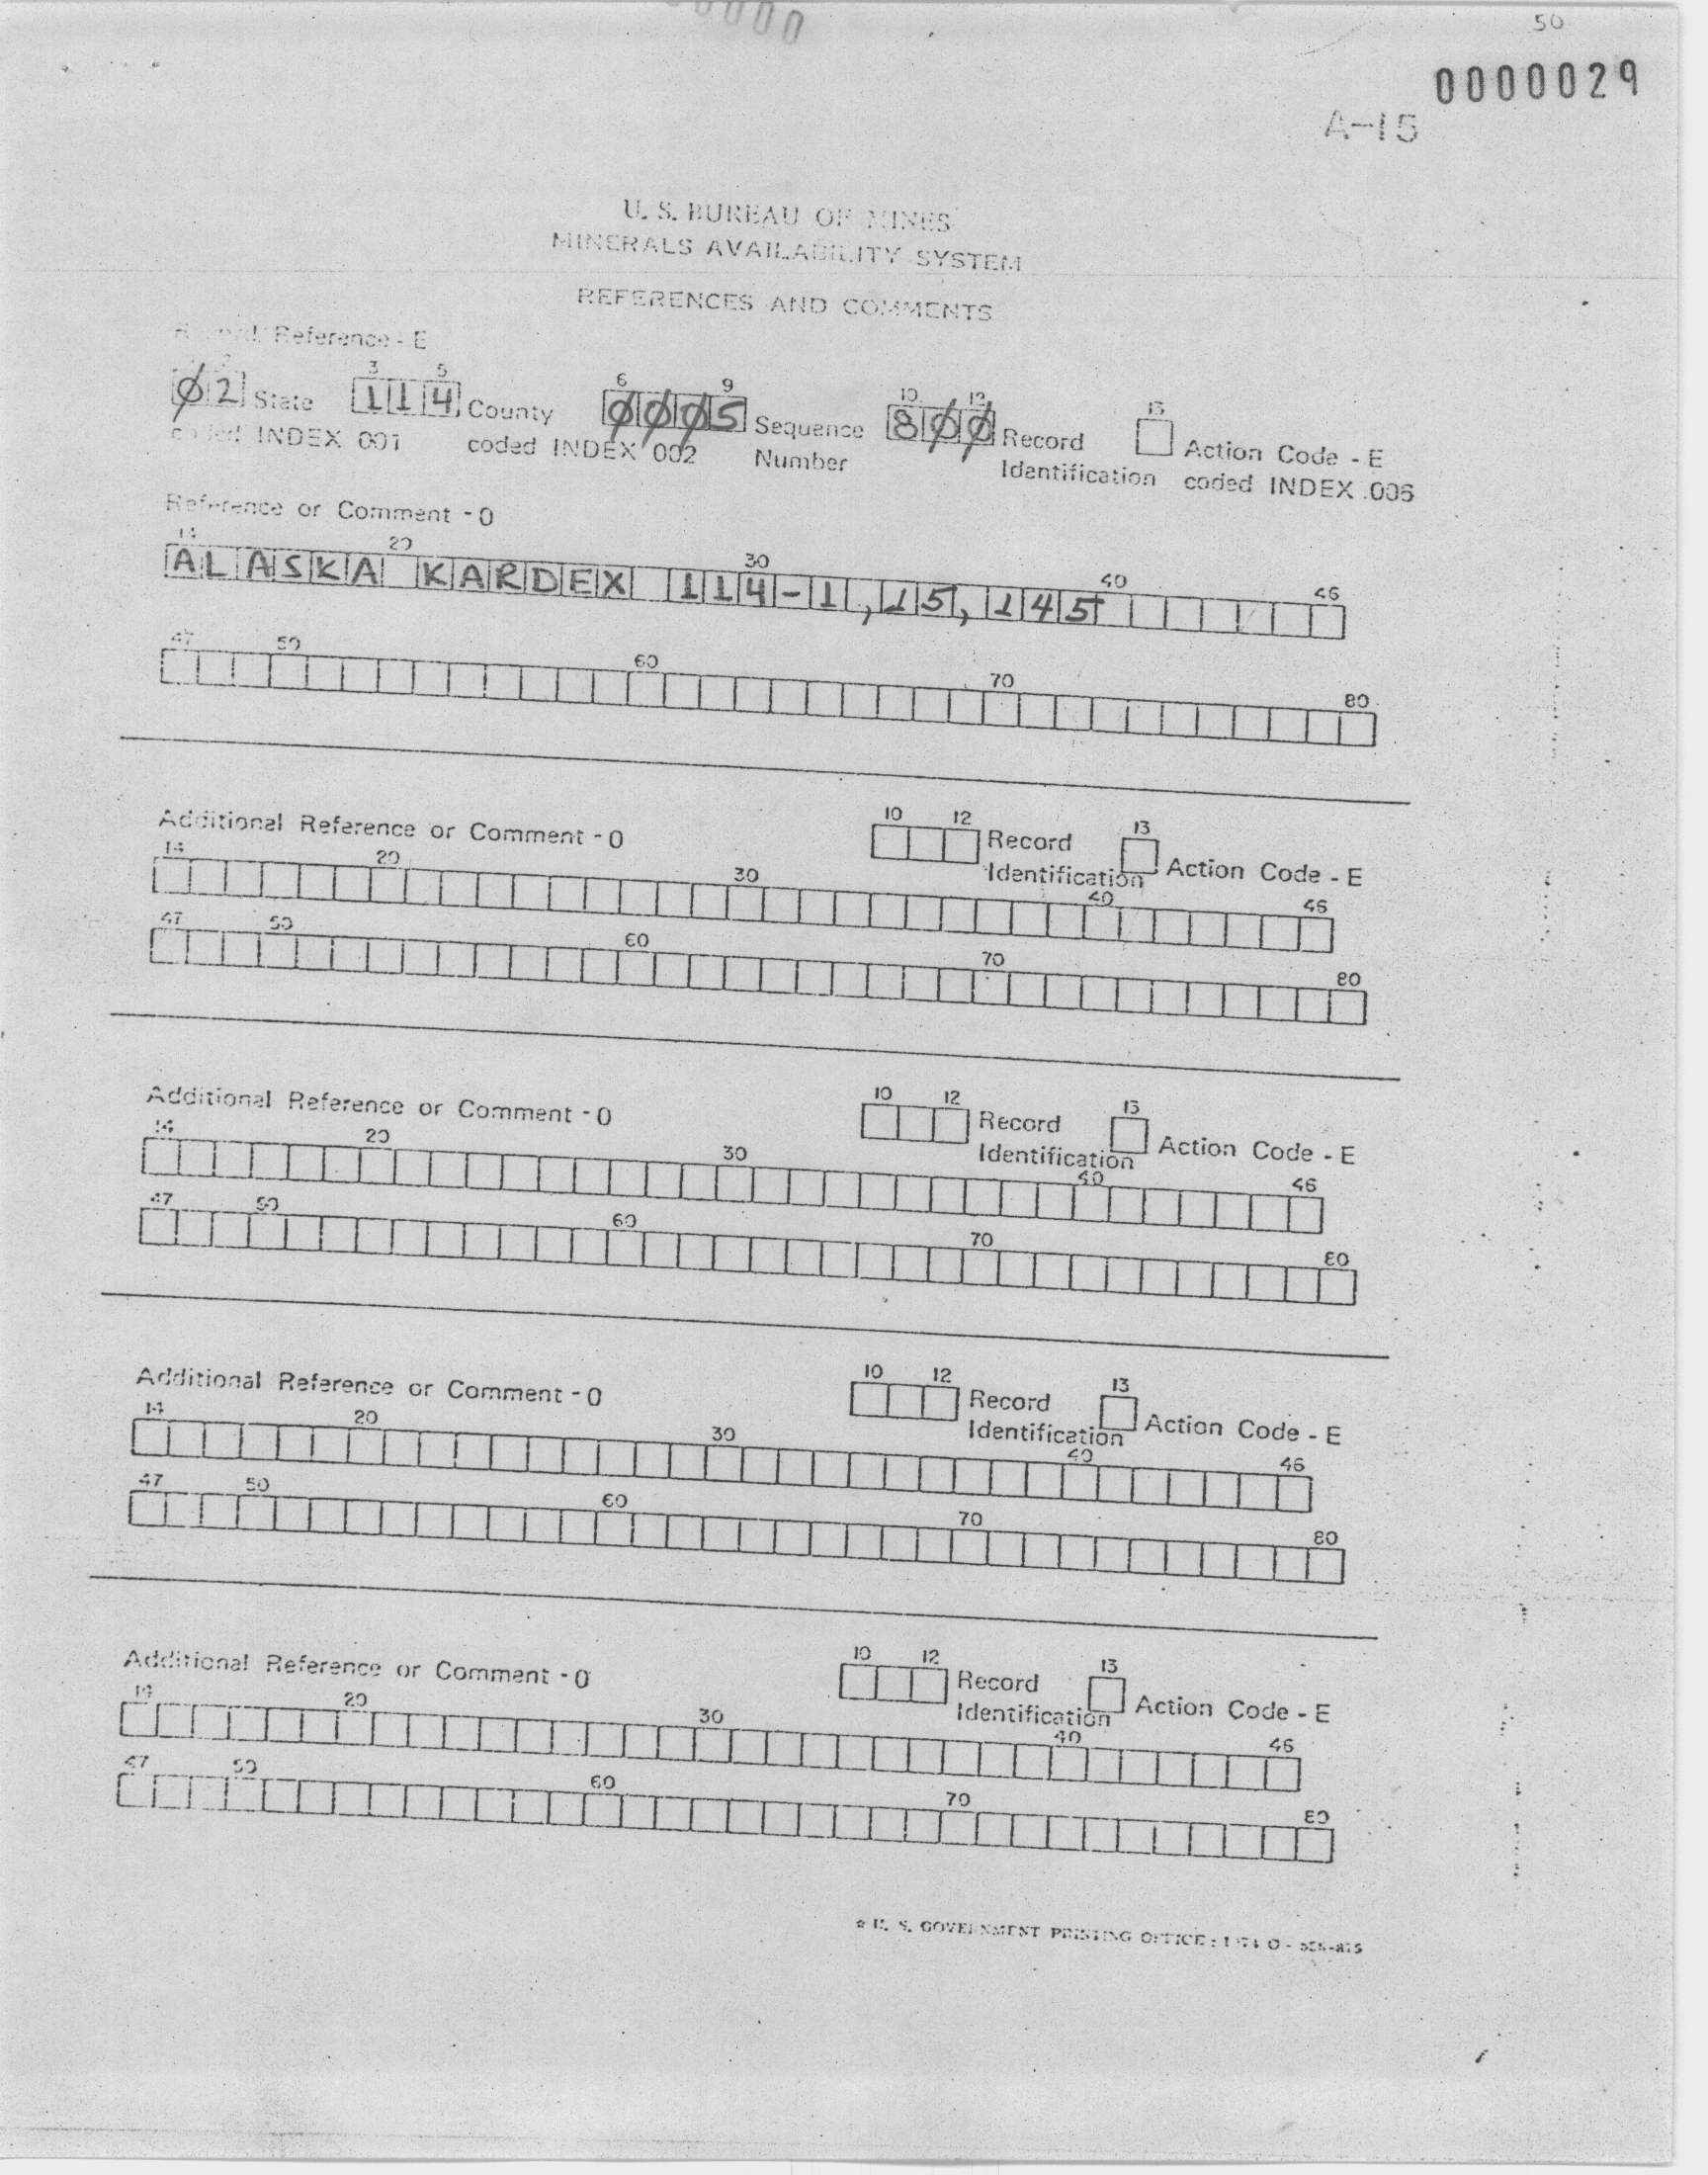 50
0000029
A-15
U. S. BUREAU OF MINES
MINERALS AVAILABILITY SYSTEM
REFERENCES AND COMMENTS
Reference - E
3 5 6 9 10 12 13
02 State 114 County 0005 Sequence 800 Record Action Code - E
coded INDEX 001 coded INDEX 002 Number Identification coded INDEX 006
Reference or Comment - O
14 20 30 40 46
ALASKA KARDEX 114-1,15,145
47 50 60 70 80
Additional Reference or Comment - O 10 12 Record 13
Identification Action Code - E
14 20 30 40 46
47 50 60 70 80
Additional Reference or Comment - O 10 12 Record 13
Identification Action Code - E
14 20 30 40 46
47 50 60 70 80
Additional Reference or Comment - O 10 12 Record 13
Identification Action Code - E
14 20 30 40 46
47 50 60 70 80
Additional Reference or Comment - O 10 12 Record 13
Identification Action Code - E
14 20 30 40 46
47 50 60 70 80
☆ U. S. GOVERNMENT PRINTING OFFICE : 1974 O -